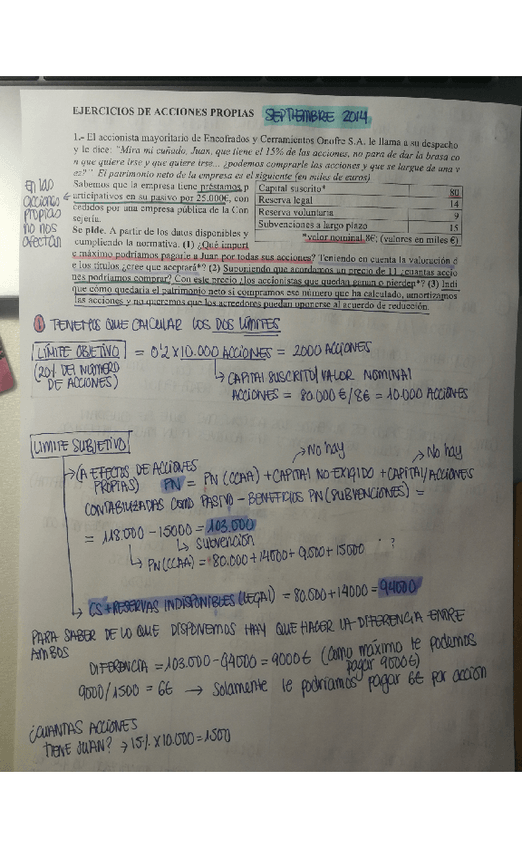 EJERCICIOS DE ACCIONES PROPIAS SEPTIEMBRE 2014
1.- El accionista mayoritario de Encofrados y Cerramientos Onofre S.A. le llama a su despacho
y le dice: "Mira mi cuñado, Juan, que tiene el 15% de las acciones, no para de dar la brasa co
n que quiere irse y que quiere irse... ¿podemos comprarle las acciones y que se largue de una v
ez?" El patrimonio neto de la empresa es el siguiente (en miles de euros)
Sabemos que la empresa tiene préstamos p
articipativos en su pasivo por 25.000€, con
cedidos por una empresa pública de la Con
sejería.
Capital suscrito* 80
Reserva legal 14
Reserva voluntaria 9
Subvenciones a largo plazo 15
*valor nominal 8€; (valores en miles €)
En las
acciones
propias
no nos
afectan
Se pide. A partir de los datos disponibles y
cumpliendo la normativa. (1) ¿Qué import
e máximo podríamos pagarle a Juan por todas sus acciones? Teniendo en cuenta la valoración d
e los títulos ¿cree que aceptará*? (2) Suponiendo que acordamos un precio de 11 ¿cuántas accio
nes podríamos comprar? Con este precio ¿los accionistas que quedan ganan o pierden*? (3) Indi
que cómo quedaría el patrimonio neto si compramos ese número que ha calculado, amortizamos
las acciones y no queremos que los acreedores puedan oponerse al acuerdo de reducción.
① TENEMOS QUE CALCULAR LOS DOS LÍMITES
LÍMITE OBJETIVO = 0'2 x 10.000 ACCIONES = 2000 ACCIONES
(20% DEL NÚMERO
DE ACCIONES)
→ CAPITAL SUSCRITO/VALOR NOMINAL
ACCIONES = 80.000 €/8€ = 10.000 ACCIONES
LÍMITE SUBJETIVO
→ No hay → No hay
→ (A EFECTOS DE ACCIONES
PROPIAS) PN = PN (CCAA) + CAPITAL NO EXIGIDO + CAPITAL/ACCIONES
CONTABILIZADAS COMO PASIVO - BENEFICIOS PN (SUBVENCIONES) =
= 118.000 - 15000 = 103.000
→ Subvención
→ PN(CCAA) = 80.000 + 14000 + 9.000 + 15000 ?
→ CS + RESERVAS INDISPONIBLES (LEGAL) = 80.000 + 14000 = 94000
PARA SABER DE LO QUE DISPONEMOS HAY QUE HACER LA DIFERENCIA ENTRE
AMBOS
DIFERENCIA = 103.000 - 94000 = 9000€ (como máximo te podemos
pagar 9000€)
9000/1500 = 6€ → Solamente le podríamos pagar 6€ por acción
¿CUANTAS ACCIONES
TIENE JUAN? → 15% x 10.000 = 1500